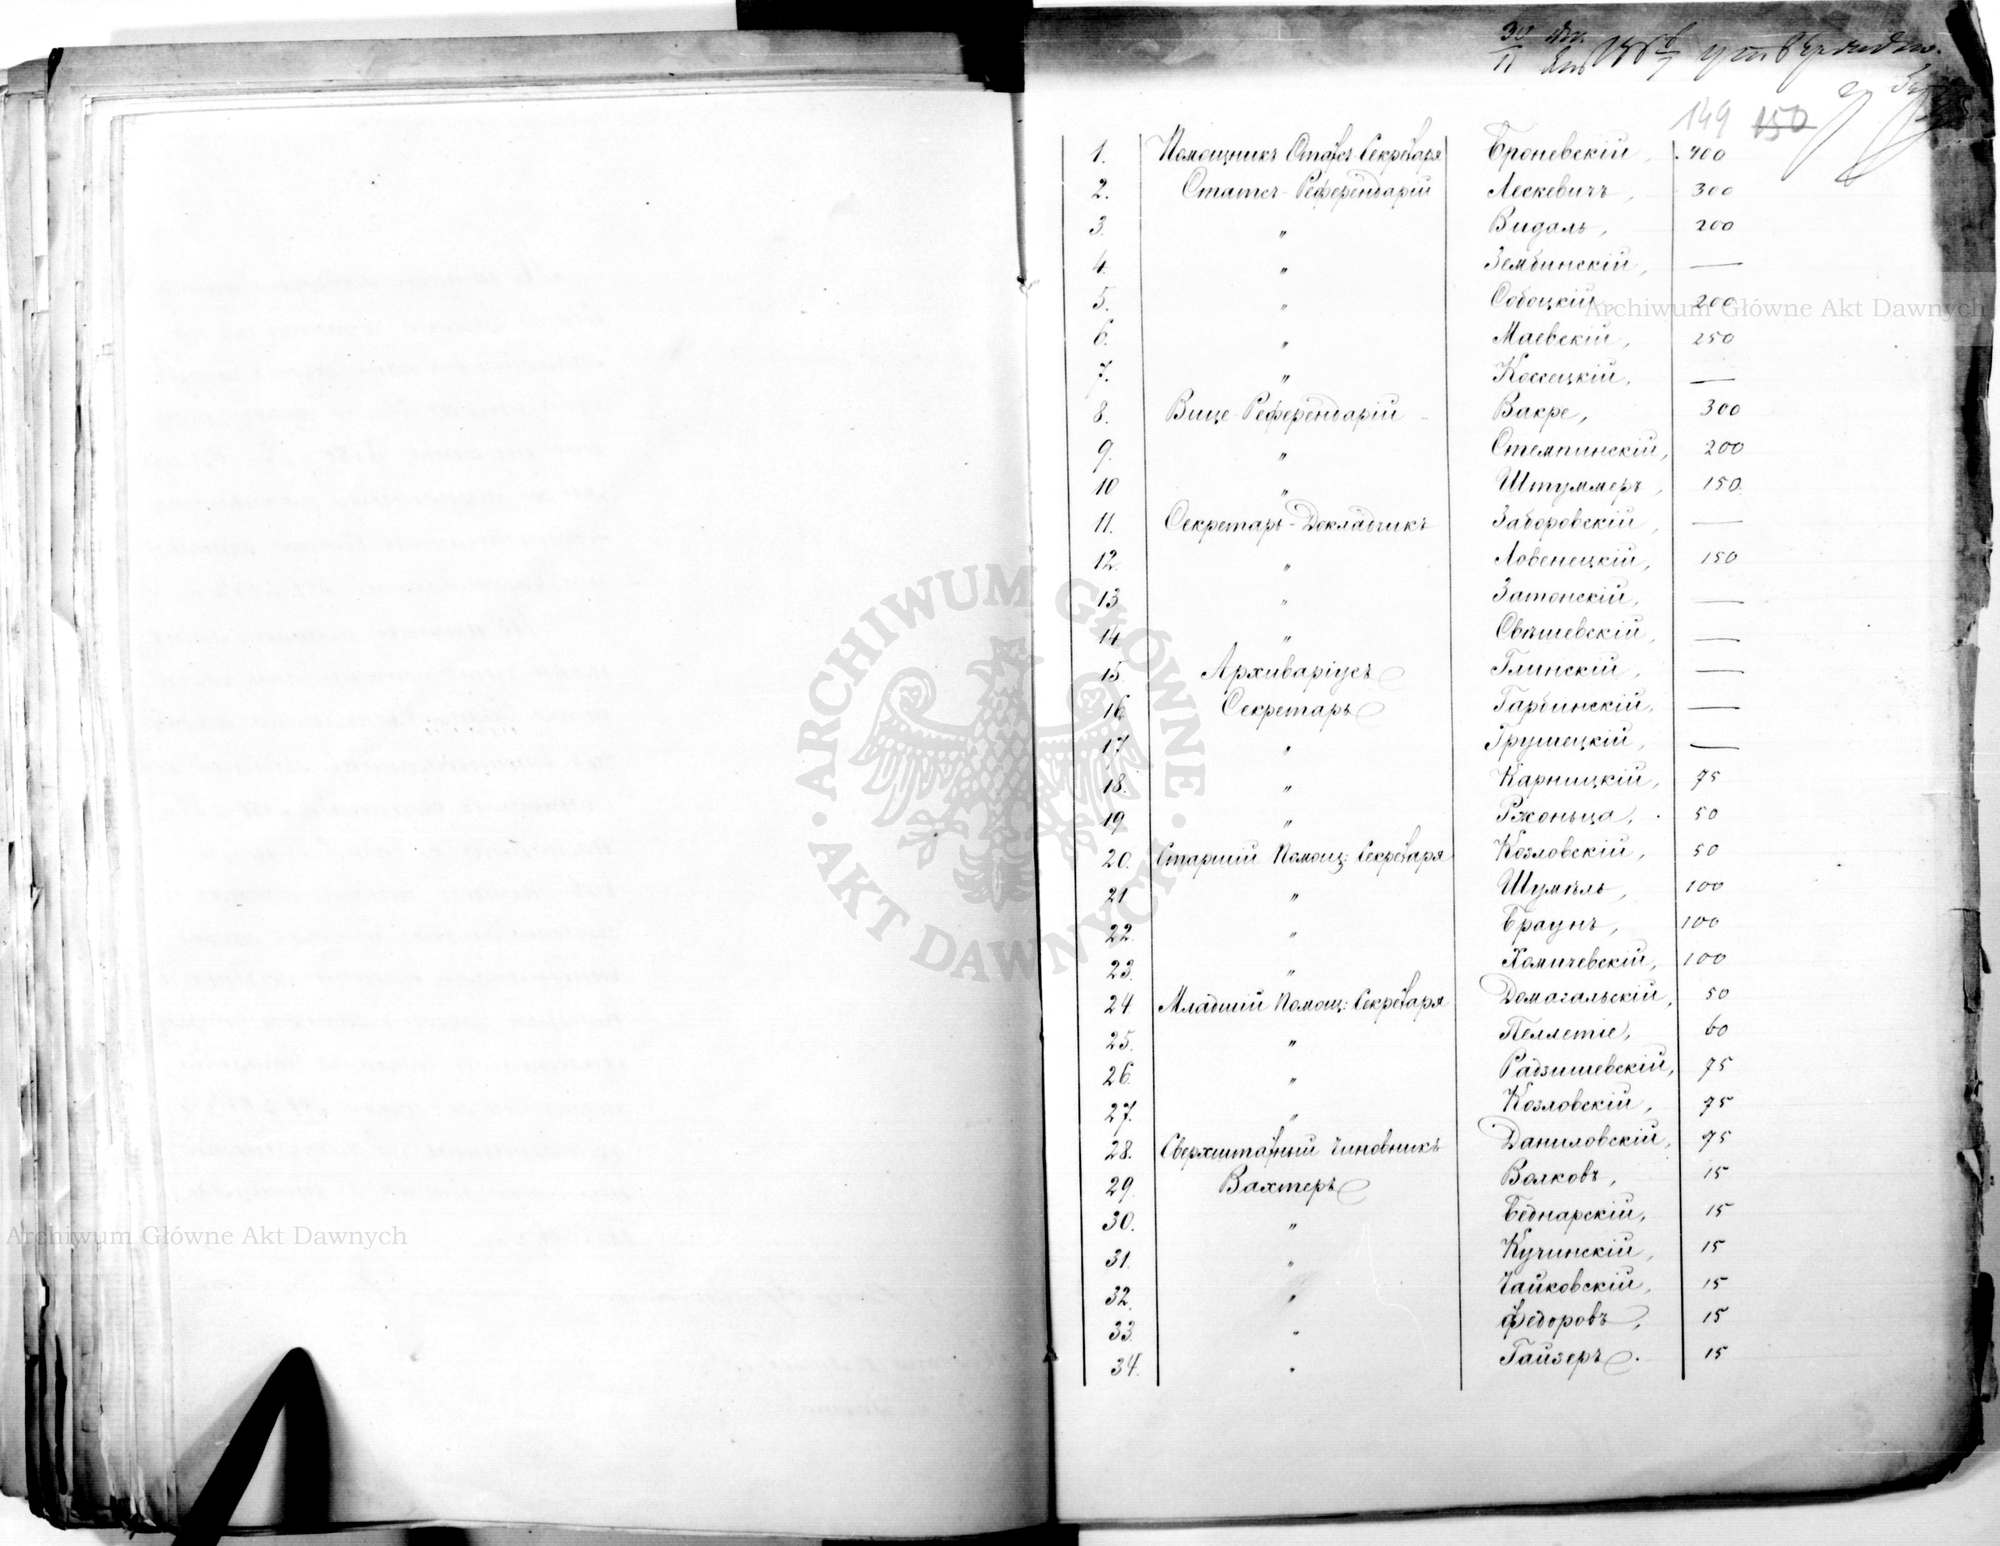 30 Дек.
11 Янв. 186 6/7 утверждаю.
149 150
1. Помощникъ Статсъ-Секретаря Броневскій, 400
2. Статсъ-Референдарій Лескевичъ, 300
3. " Видаль, 200
4. " Зембинскій, —
5. " Собоцкій, 200
6. " Маевскій, 250
7. " Коссецкій, —
8. Вице-Референдарій - Вакре, 300
9. " Стемпинскій, 200
10 " Штуммеръ, 150
11. Секретарь-Докладчикъ Заборовскій, —
12. " Ловенецкій, 150
13. " Затонскій, —
14. " Свѣшевскій, —
15. Архиваріусъ Глинскій, —
16. Секретарь Гарбинскій, —
17. " Грушецкій, —
18. " Карницкій, 75
19. " Ржоньца, 50
20. Старшій Помощ: Секретаря Козловскій, 50
21 " Шумѣль, 100
22. " Браунъ, 100
23. " Хомичевскій, 100
24. Младшій Помощ: Секретаря Домагальскій, 50
25. " Пеллетіе, 60
26. " Радзишевскій, 75
27. " Козловскій, 75
28. Сверхштатный Чиновникъ Даниловскій, 75
29. Вахтеръ Волковъ, 15
30. " Беднарскій, 15
31. " Кучинскій, 15
32. " Чайковскій, 15
33. " Федоровъ, 15
34. " Гайзеръ. 15
Archiwum Główne Akt Dawnych
Archiwum Główne Akt Dawnych
ARCHIWUM GŁÓWNE · AKT DAWNYCH ·